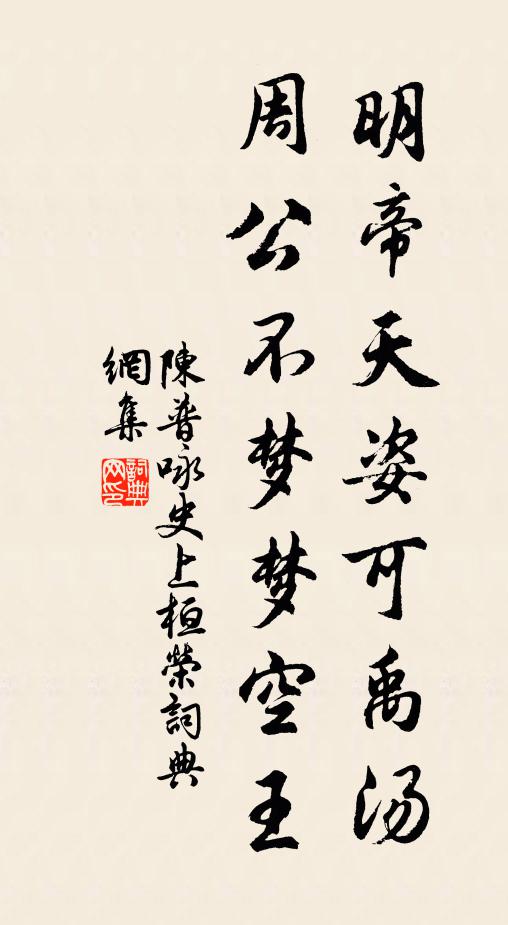 明帝天姿可禹汤
周公不梦梦空王
陳普咏史上桓榮詞典
網集
詞典网印